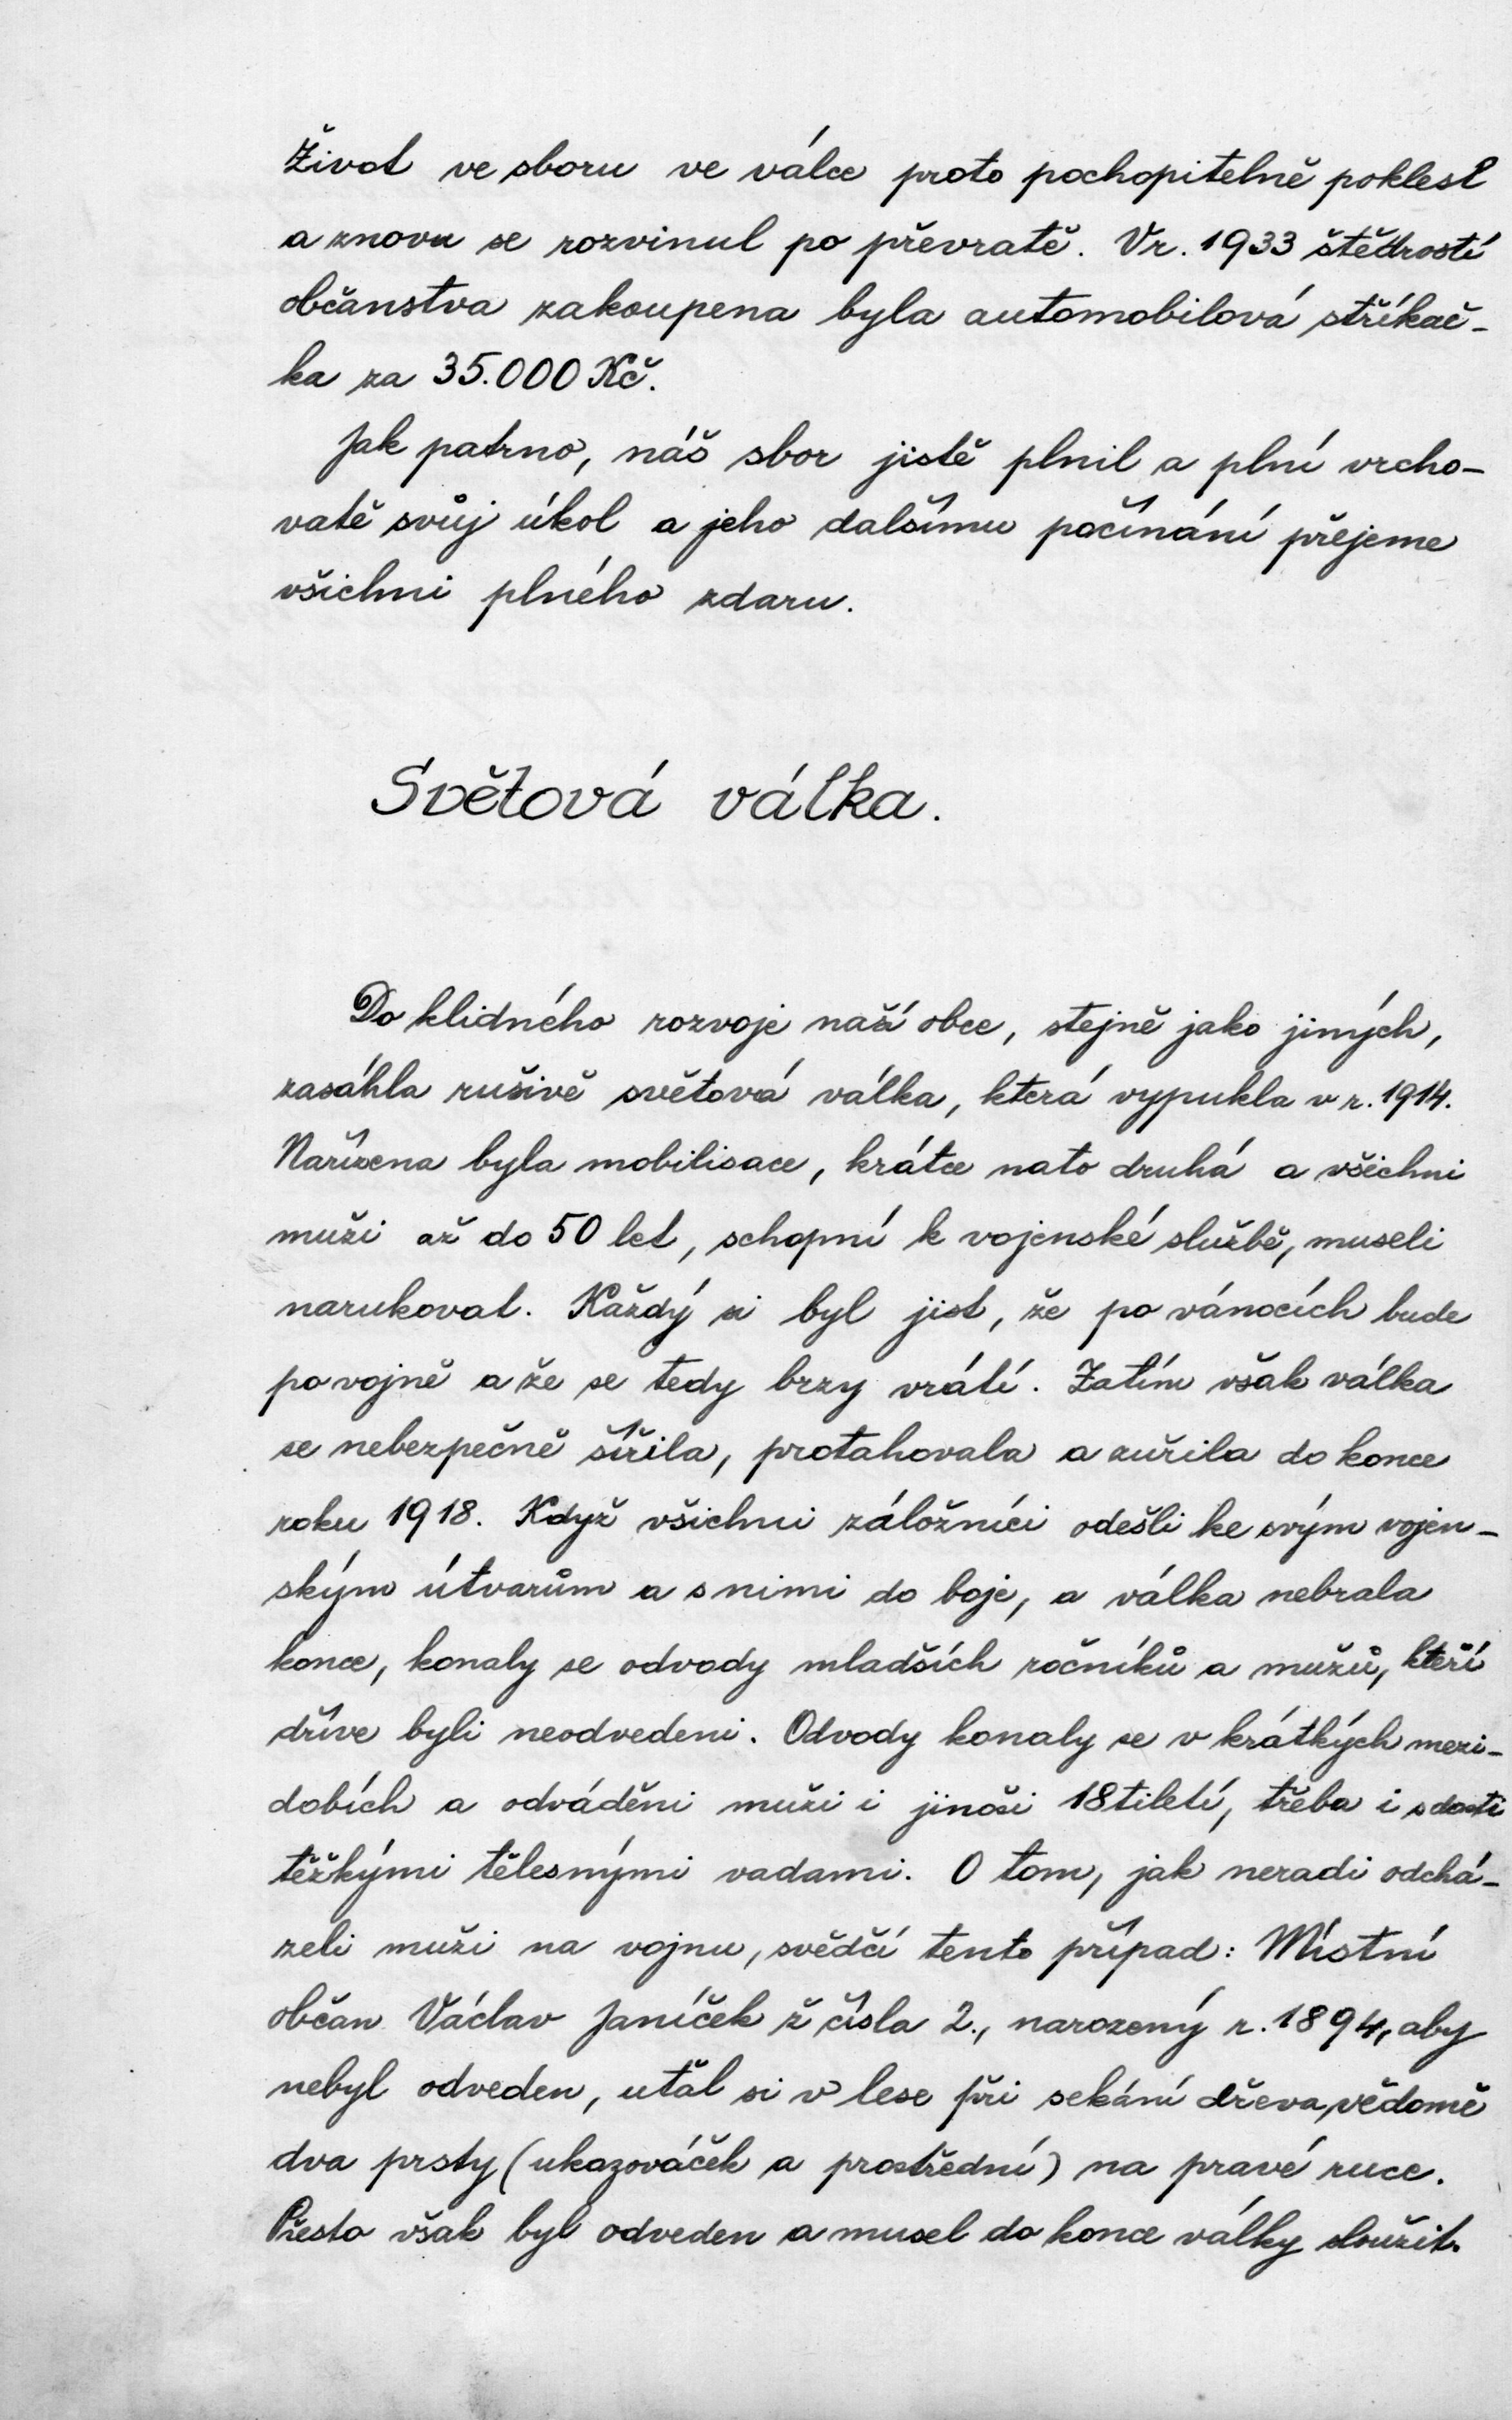 Život ve sboru ve válce proto pochopitelně poklesl
a znovu se rozvinul po převratě. V r. 1933 štědrostí
občanstva zakoupena byla automobilová stříkač-
ka za 35.000 Kč.
Jak patrno, náš sbor jistě plnil a plní vrcho-
vatě svůj úkol a jeho dalšímu počínání přejeme
všichni plného zdaru.
Světová válka.
Do klidného rozvoje naší obce, stejně jako jiných,
zasáhla rušivě světová válka, která vypukla v r. 1914.
Nařízena byla mobilisace, krátce nato druhá a všichni
muži až do 50 let, schopní k vojenské službě, museli
narukovat. Každý si byl jist, že po vánocích bude
po vojně a že se tedy brzy vrátí. Zatím však válka
se nebezpečně šířila, protahovala a zuřila do konce
roku 1918. Když všichni záložníci odešli ke svým vojen-
ským útvarům a s nimi do boje, a válka nebrala
konce, konaly se odvody mladších ročníků a mužů, kteří
dříve byli neodvedeni. Odvody konaly se v krátkých mezi-
dobích a odváděni muži i jinoši 18tiletí, třeba i s dosti
těžkými tělesnými vadami. O tom, jak neradi odchá-
zeli muži na vojnu, svědčí tento případ: Místní
občan Václav Janíček ž čísla 2., narozený r. 1894, aby
nebyl odveden, uťal si v lese při sekání dřeva, vědomě
dva prsty (ukazováček a prostřední) na pravé ruce.
Přesto však byl odveden a musel do konce války sloužit.